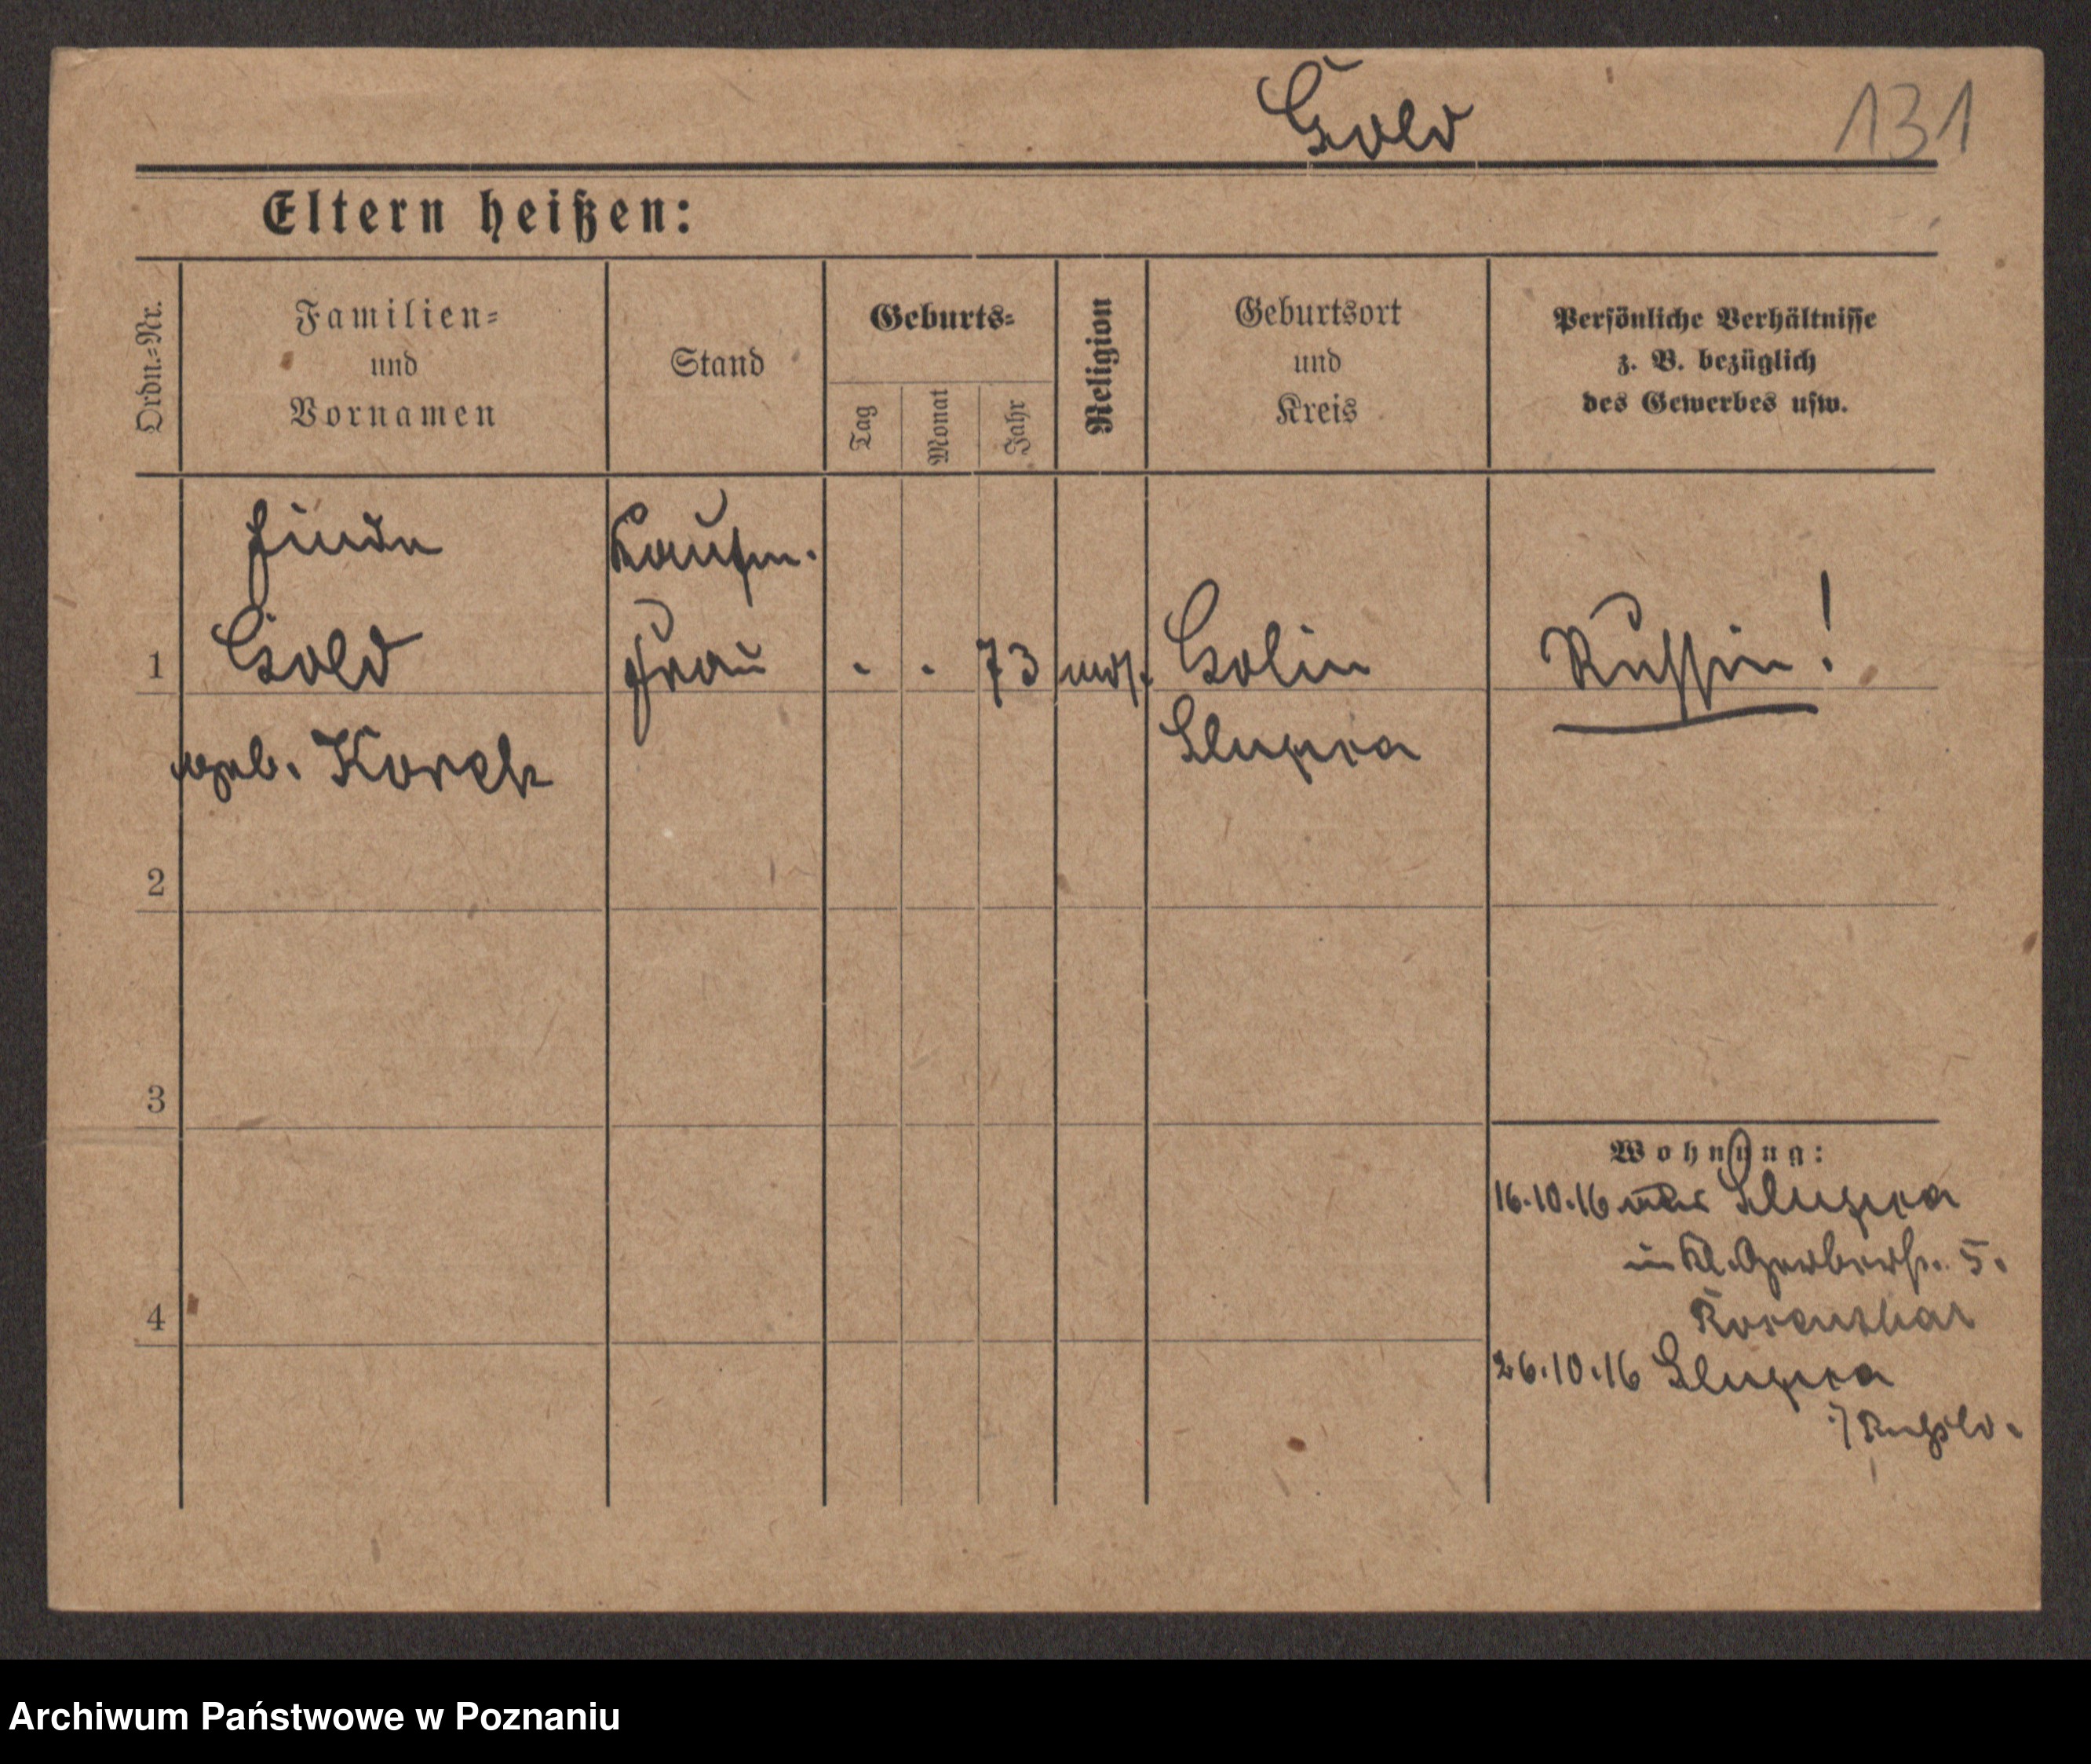 Gold
131
Eltern heißen:
Ordn.-Nr.
Familien-
und
Vornamen
Stand
Geburts-
Tag
Monat
Jahr
Religion
Geburtsort
und
Kreis
Persönliche Verhältnisse
z. B. bezüglich
des Gewerbes usw.
Kaufm.
1 Gold Frau . . 73 mos. Golin Russin!
geb. Slupca
2
3
4
Wohnung:
16.10.16 aus Slupca
in Kl. Gerberstr. 5.
26.10.16 Slupca
i/Rußld.
Archiwum Państwowe w Poznaniu